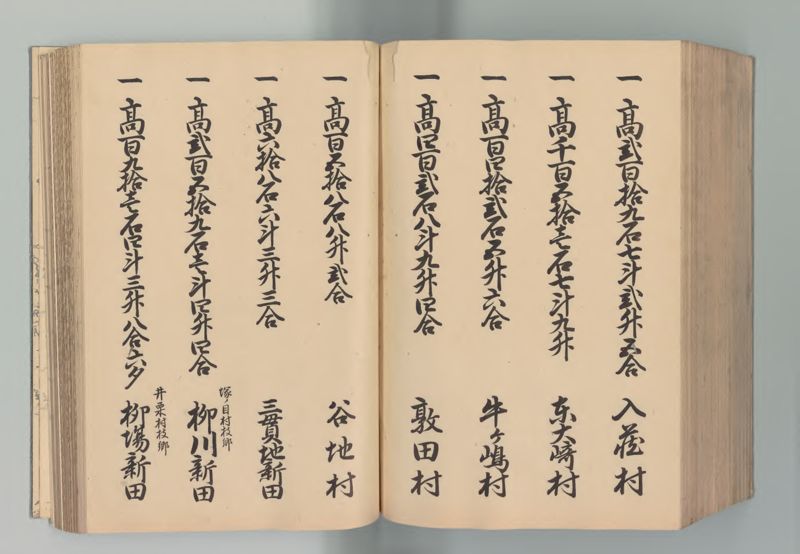 一 高弐百拾九石七斗弐升五合 入蔵村
一 高千百五拾壱石七斗九升 東大崎村
一 高百四拾弐石五升六合 牛ヶ嶋村
一 高四百弐石八斗九升四合 敦田村
一 高百五拾八石八升弐合 谷地村
一 高六拾八石六斗三升三合 三貫地新田
塚ノ目村枝郷
一 高弐百五拾九石壱斗四升四合 柳川新田
井栗村枝郷
一 高百九拾壱石四斗三升八合六夕 柳場新田